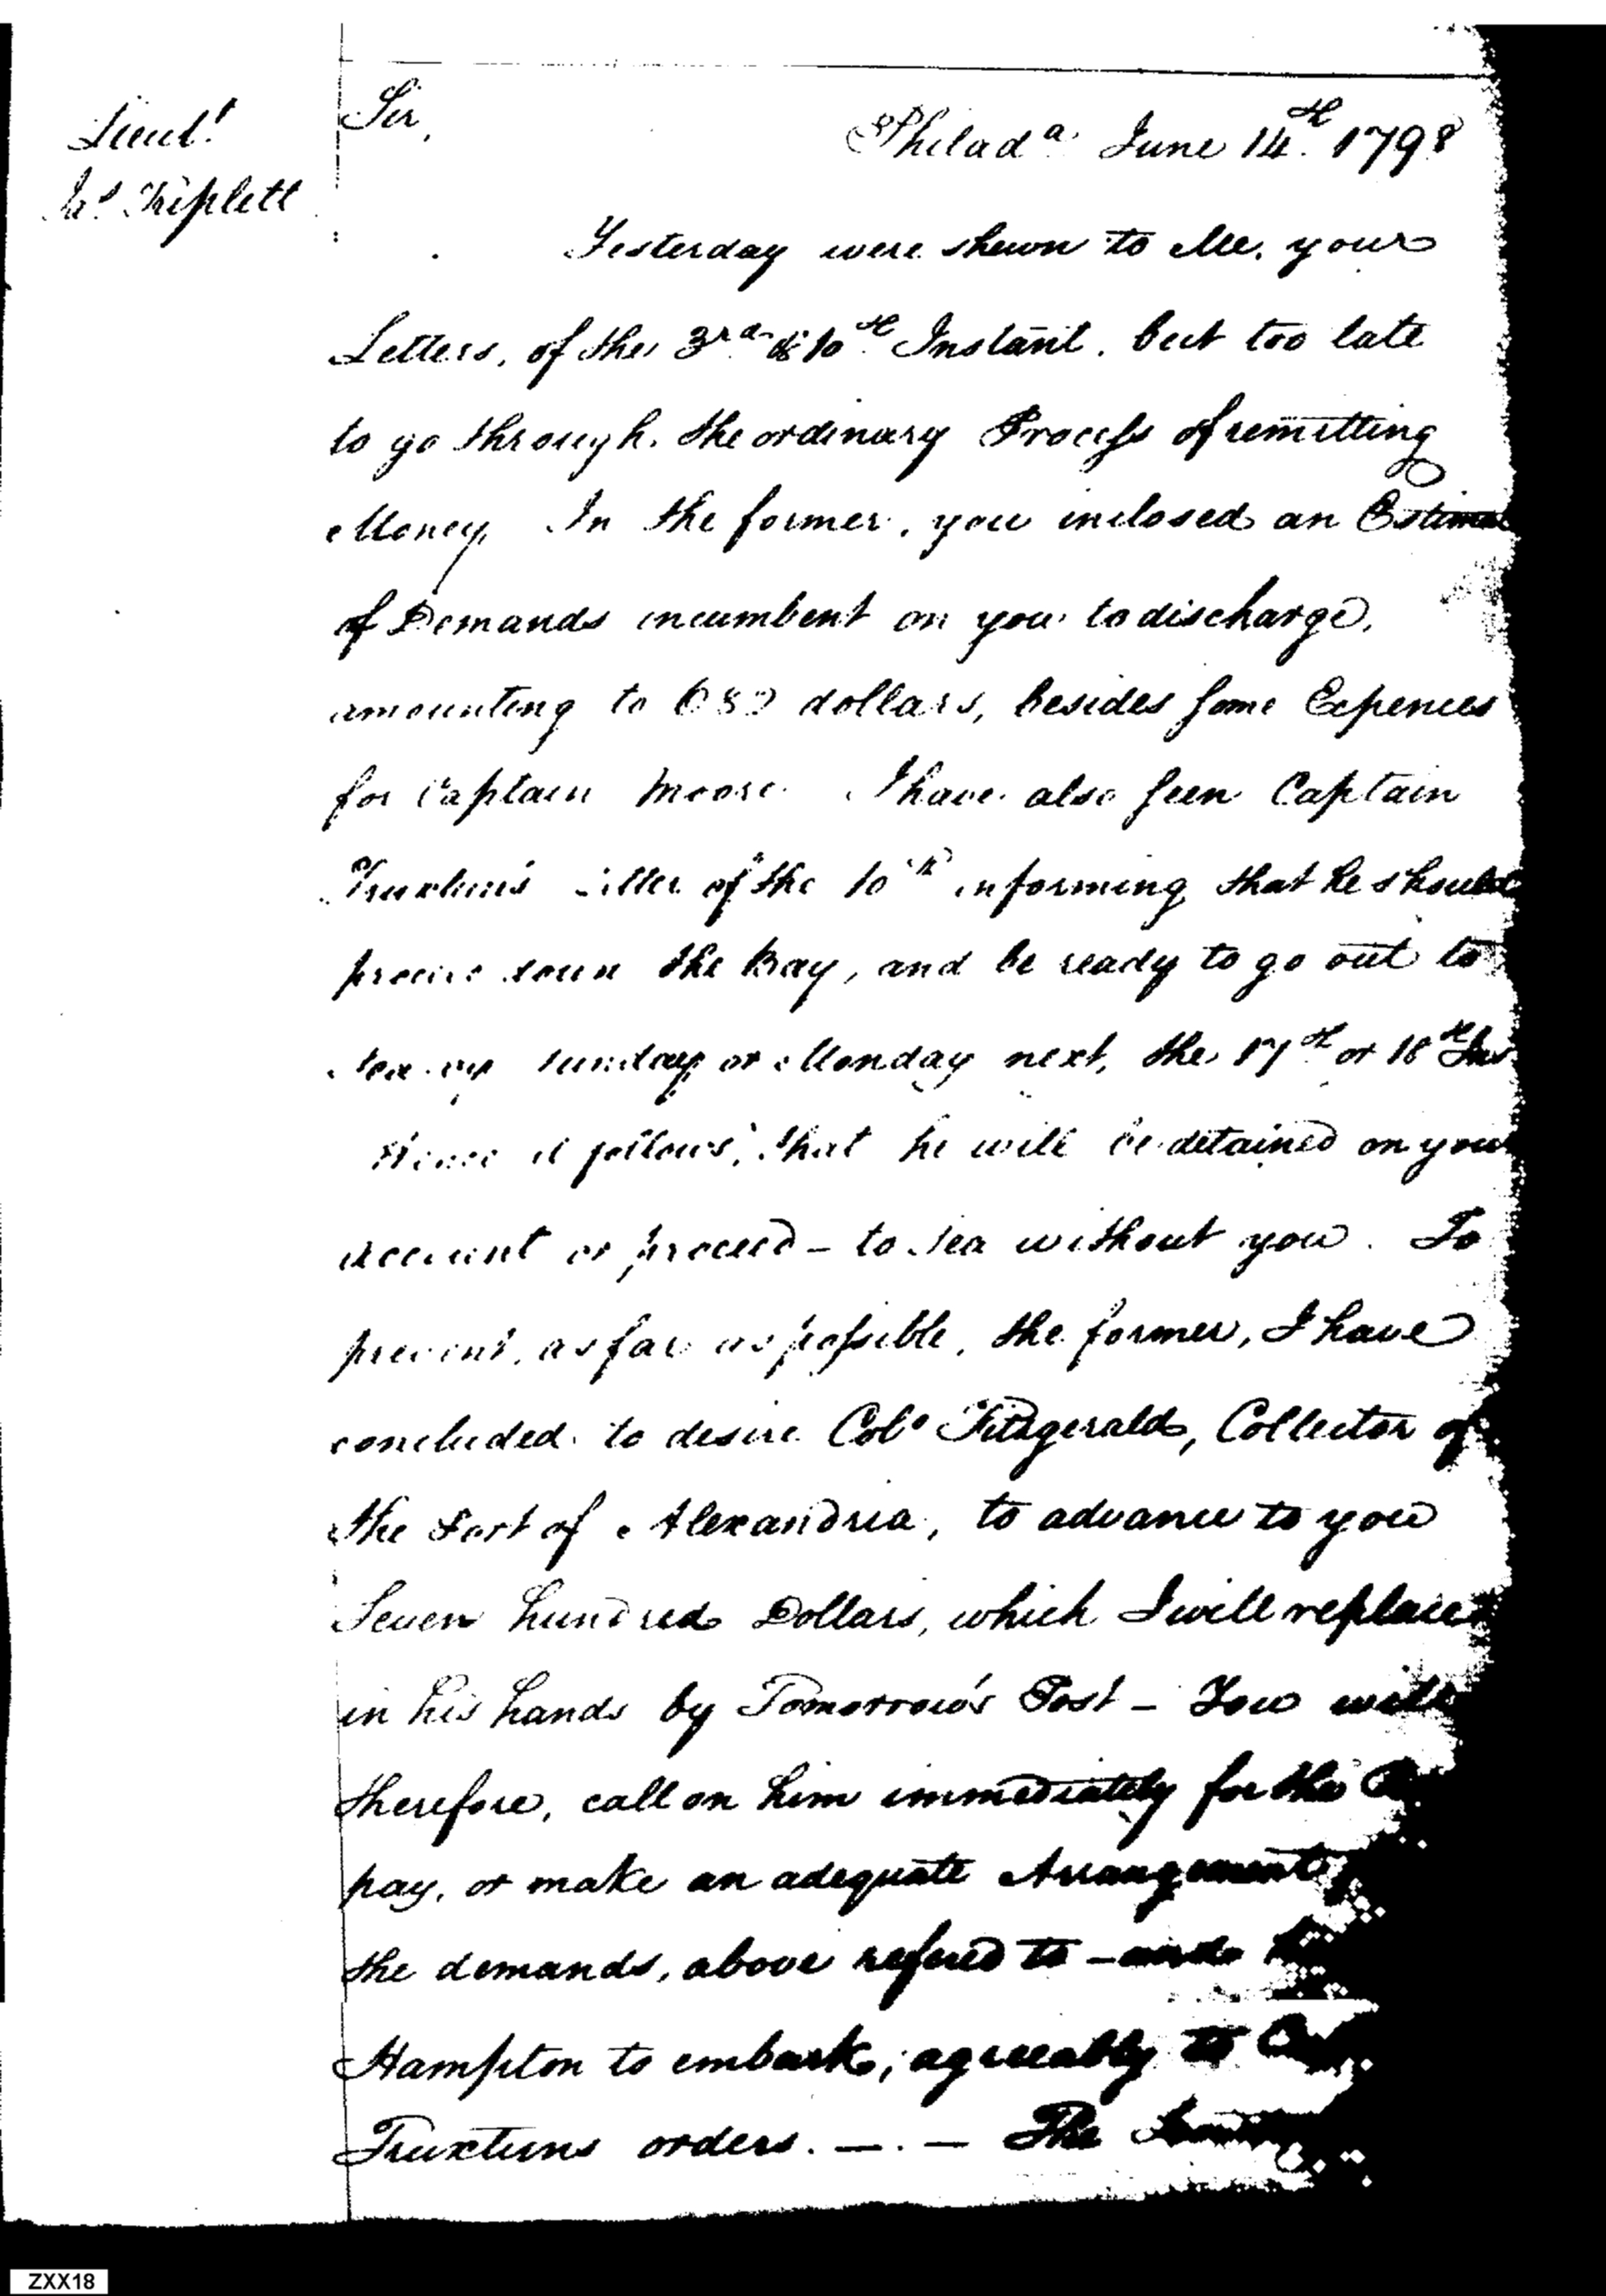 Lieut.
Jas. Triplett
Sir,
Philada. June 14th. 1798
Yesterday were shewn to Me, your
Letters, of the 3rd. & 10th. Instant. but too late
to go through, the ordinary Process of remitting
Money, In the former, you inclosed an
of Demands incumbent on you to discharge,
amounting to dollars, besides some Expences
for Captain Moore. I have also seen Captain
Truxtun's Letter of the 10th informing that he should
down the Bay, and be ready to go out to
Sea on Sunday or Monday next, the 17th or 18th
Hence it follows, that he will be detained on
account or proceed - to Sea without you. To
prevent, as far as possible, the former, I have
concluded to desire Colo Fitzgerald, Collector of
the Port of Alexandria, to advance to you
Seven hundred Dollars, which I will replace
in his hands by Tomorrow's Post - You will
therefore, call on him immediately for the
pay, or make an adequate Arrangement
the demands, above refered to - and
Hampton to embark, agreeably to
Truxtuns orders. — . — The
ZXX18